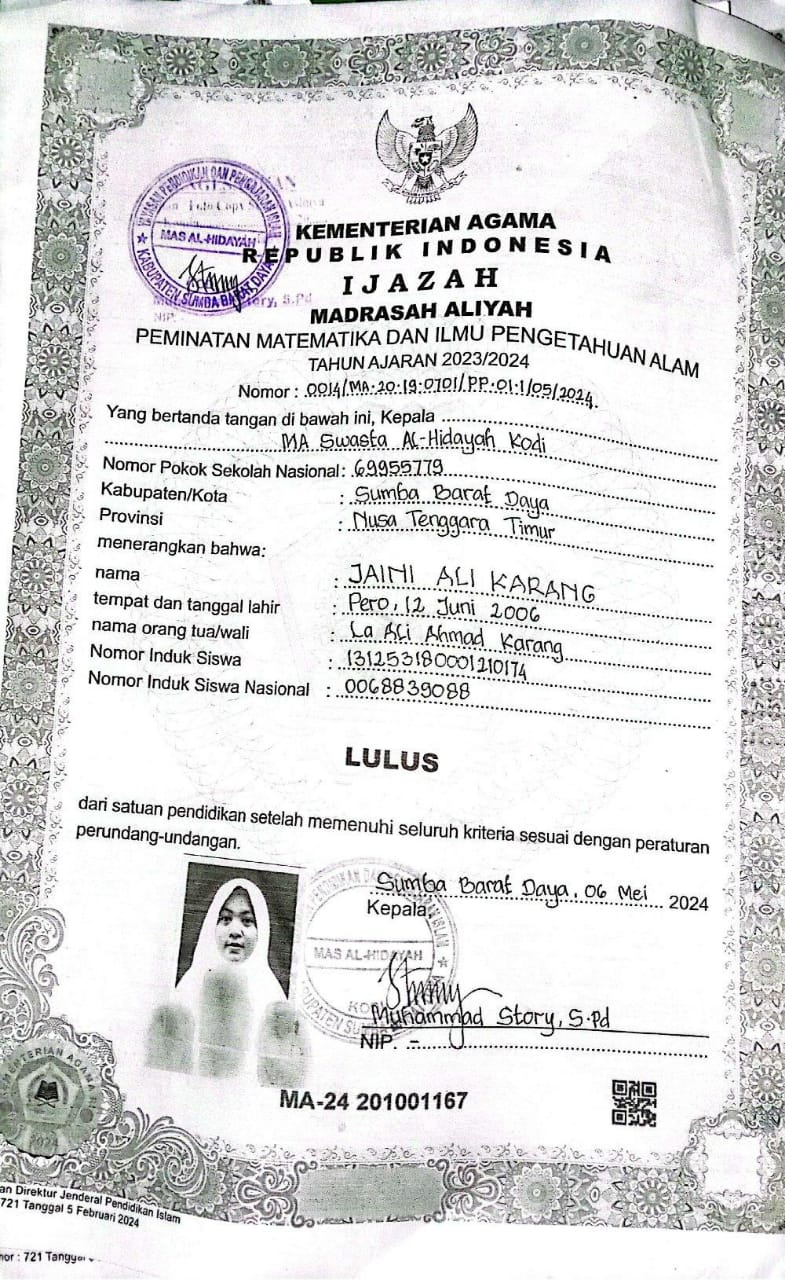 YAYASAN PENDIDIKAN DAN PENGAJARAN ISLAM
MAS AL-HIDAYAH
KABUPATEN SUMBA BARAT DAYA
KEMENTERIAN AGAMA
REPUBLIK INDONESIA
IJAZAH
MADRASAH ALIYAH
PEMINATAN MATEMATIKA DAN ILMU PENGETAHUAN ALAM
TAHUN AJARAN 2023/2024
Nomor : 0014/MA.20.19.0701/PP.01.1/05/2024.
Yang bertanda tangan di bawah ini, Kepala
MA Swasta AL-Hidayah Kodi
Nomor Pokok Sekolah Nasional : 69955779
Kabupaten/Kota : Sumba Barat Daya
Provinsi : Nusa Tenggara Timur
menerangkan bahwa:
nama : JAINI ALI KARANG
tempat dan tanggal lahir : Pero, 12 Juni 2006
nama orang tua/wali : La Ali Ahmad Karang
Nomor Induk Siswa : 131253180001210174
Nomor Induk Siswa Nasional : 0068839088
LULUS
dari satuan pendidikan setelah memenuhi seluruh kriteria sesuai dengan peraturan
perundang-undangan.
Sumba Barat Daya, 06 Mei 2024
Kepala,
MAS AL-HIDAYAH
Muhammad Story, S.Pd
NIP. -
MA-24 201001167
KEMENTERIAN AGAMA
2024
an Direktur Jenderal Pendidikan Islam
721 Tanggal 5 Februari 2024
nor : 721 Tanggal